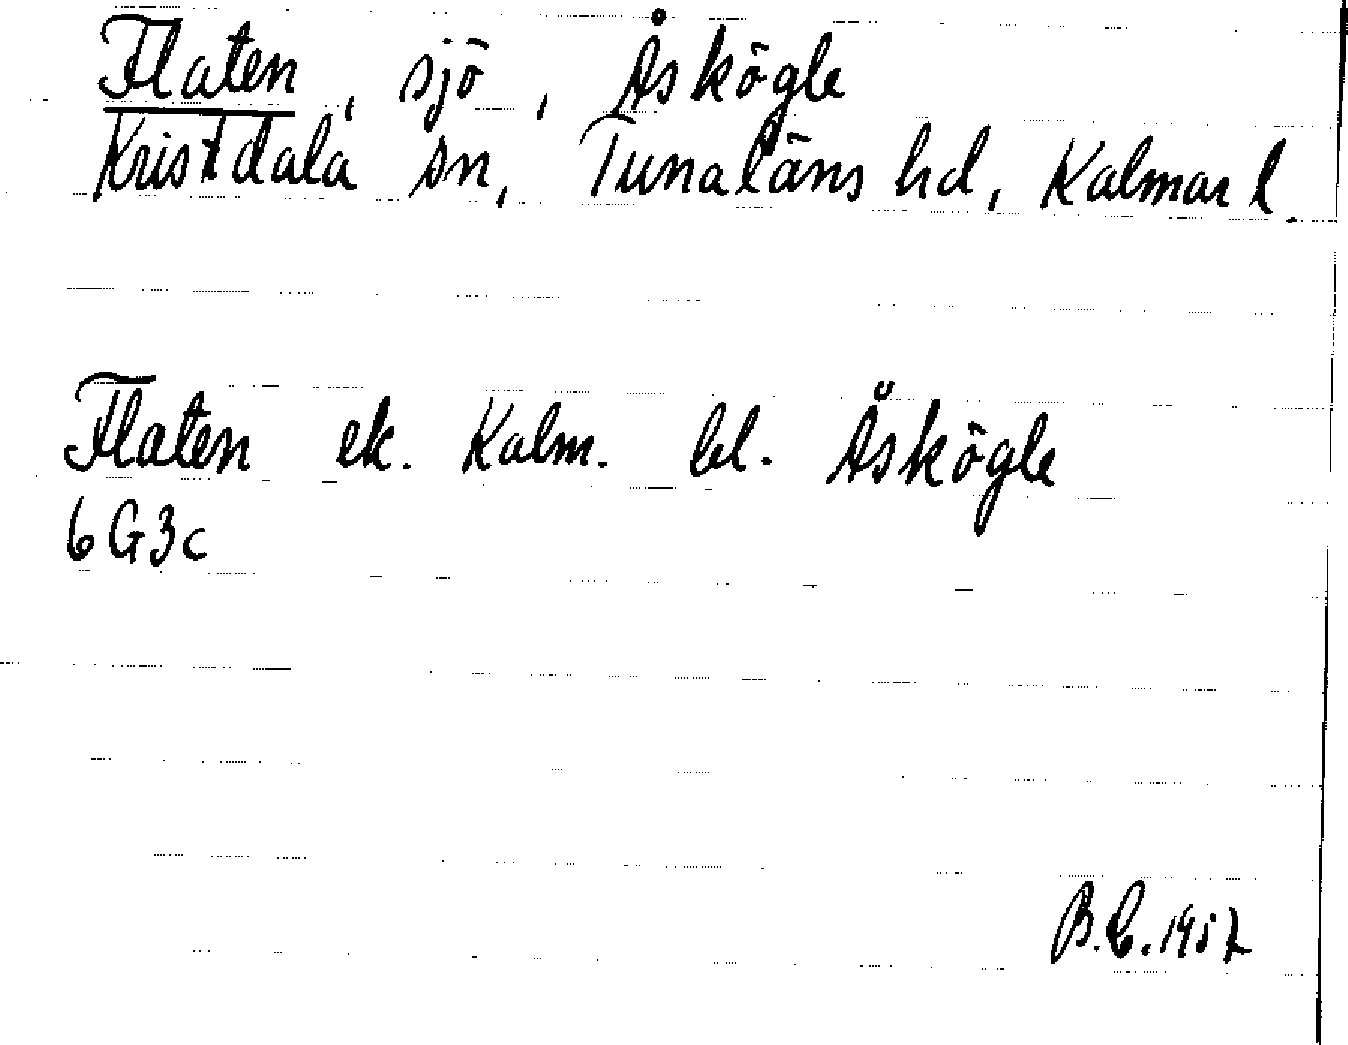 Flaten, sjö, Åskögle
Kristdala sn, Tunaläns hd, Kalmar l.
Flaten ek. Kalm. bl. Åskögle
6G3c
B.C. 1957